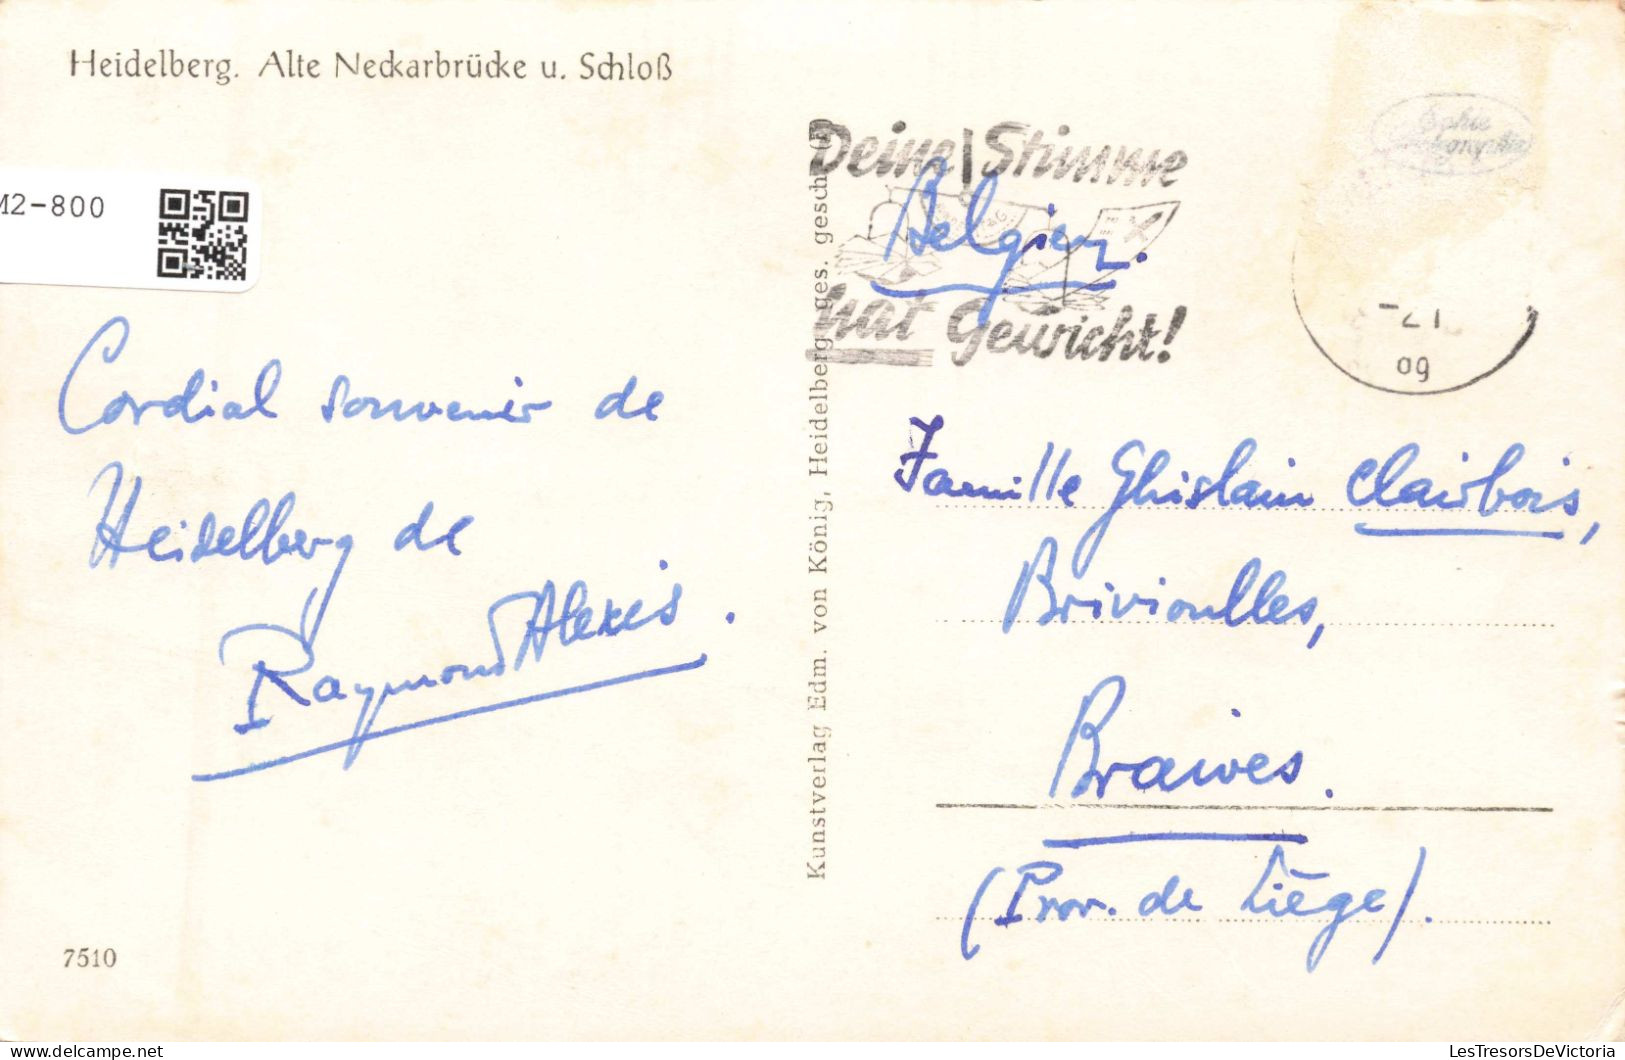 Heidelberg. Alte Neckarbrücke u. Schloß
M2-800
Cordial souvenir de
Heidelberg de
Raymond Alexis.
7510
Kunstverlag Edm. von König, Heidelberg ges. gesch.
Deine Stimme
hat Gewicht!
Belgien.
09
Famille Ghislain Clairbois,
Brivioulles,
Braives.
(Prov. de Liège).
LesTresorsDeVictoria
delcampe.net